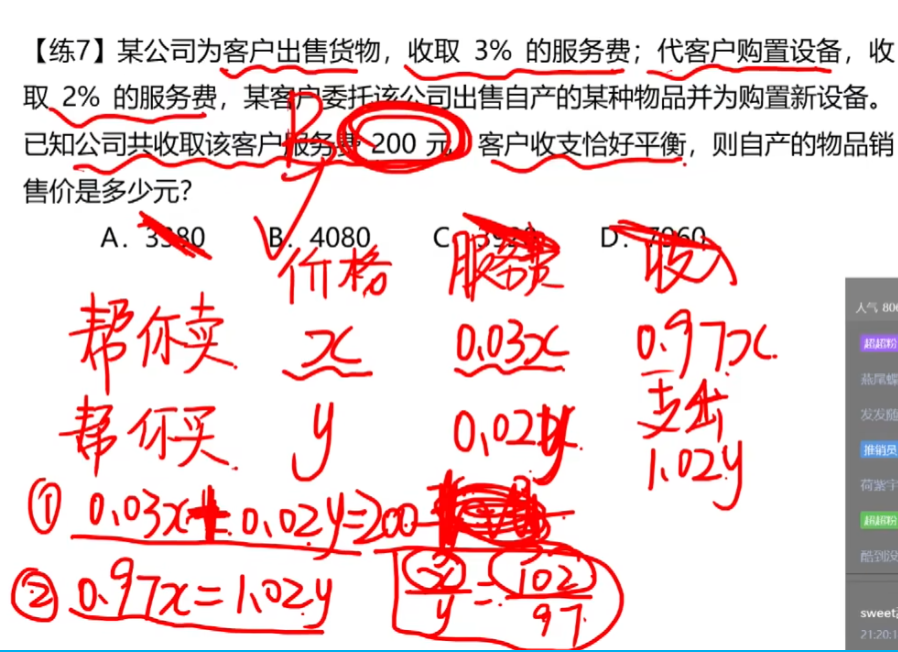 【练7】某公司为客户出售货物，收取 3% 的服务费；代客户购置设备，收
取 2% 的服务费，某客户委托该公司出售自产的某种物品并为购置新设备。
已知公司共收取该客户服务费 200 元，客户收支恰好平衡，则自产的物品销
售价是多少元？
A. 3880 B. 4080 C. 3920 D. 7960
B
价格 服务费 收入
帮你卖 x 0.03x 0.97x
支出
帮你买 y 0.02y 1.02y
① 0.03x+0.02y=200
② 0.97x=1.02y
x/y=102/97
人气 806
超超粉
燕尾蝶
发发随
推销员
荷紫宇
超超粉
酷到没
sweet
21:20:1